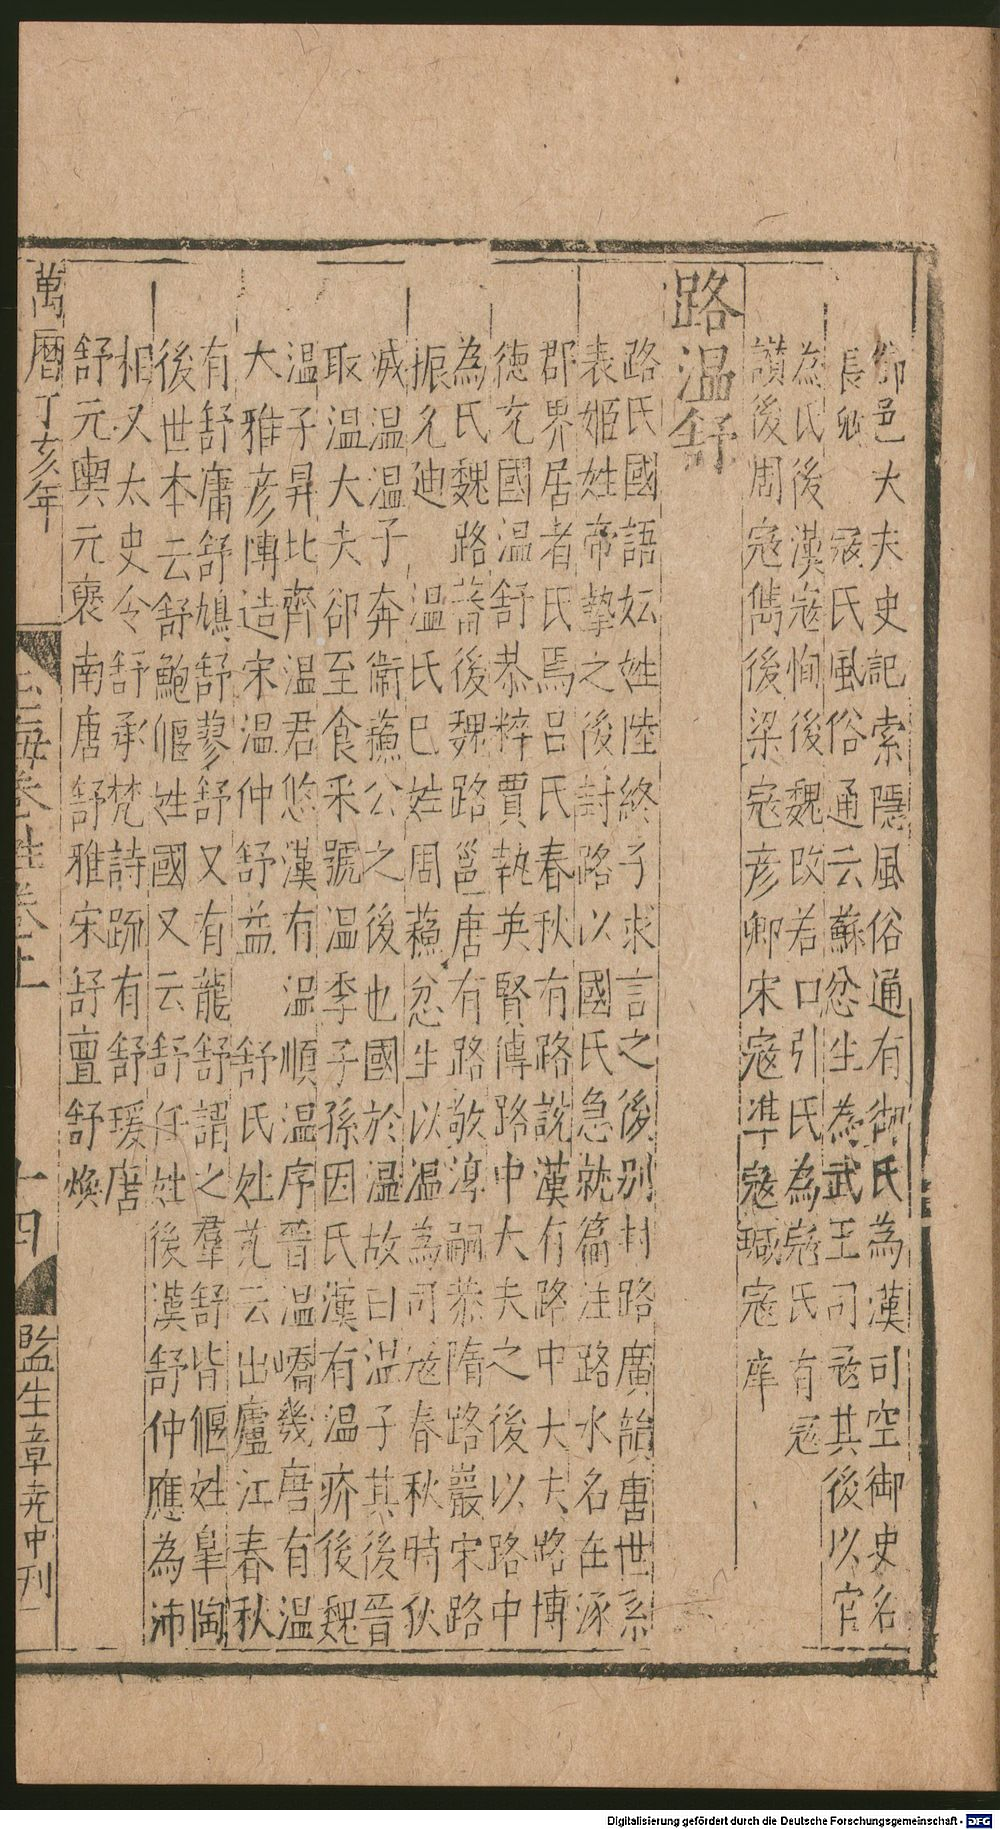 御邑大夫史記索隱風俗通有御氏為漢司空御史名
長䣛　寇氏風俗通云蘇忿生為武王司寇其後以官
為氏後漢寇恂後魏改若口引氏為寇氏有寇
讃後周寇儁後梁寇彦卿宋寇準寇瑊寇庠
路温舒
路氏國語妘姓陸終子求言之後别封路廣韻唐世系
表姬姓帝摯之後封路以國氏急就篇注路水名在涿
郡界居者氏焉吕氏春秋有路説漢有路中大夫路博
徳充國温舒恭粹賈執英賢傳路中大夫之後以路中
為氏魏路蕃後魏路邕唐有路敬淳嗣恭隋路巖宋路
振允迪　温氏巳姓周蘓忿生以温為司寇春秋時狄
滅温温子奔衛蘓公之後也國於温故曰温子其後晉
取温大夫郤至食采號温季子孫因氏漢有温疥後魏
温子昇北齊温君悠漢有温順温序晉温嶠幾唐有温
大雅彦博造宋温仲舒益　舒氏姓苑云出廬江春秋
有舒庸舒鳩舒蓼舒又有龍舒謂之羣舒皆偃姓臯陶
後世本云舒鮑偃姓國又云舒任姓後漢舒仲應為沛
相又太史令舒承梵詩䟽有舒瑗唐
舒元輿元褒南唐舒雅宋舒亶舒焕
萬曆丁亥年
玉海卷姓卷上
十四
監生章堯中刊
Digitalisierung gefördert durch die Deutsche Forschungsgemeinschaft - DFG